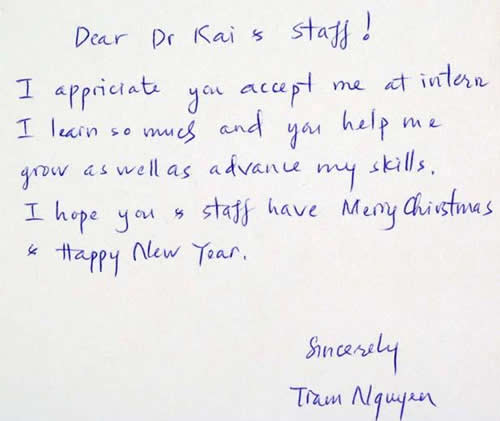 Dear Dr Kai & staff!
I appriciate you accept me at intern
I learn so much and you help me
grow as well as advance my skills.
I hope you & staff have Merry Chirstmas
& Happy New Year.
Sincerely
Tram Nguyen